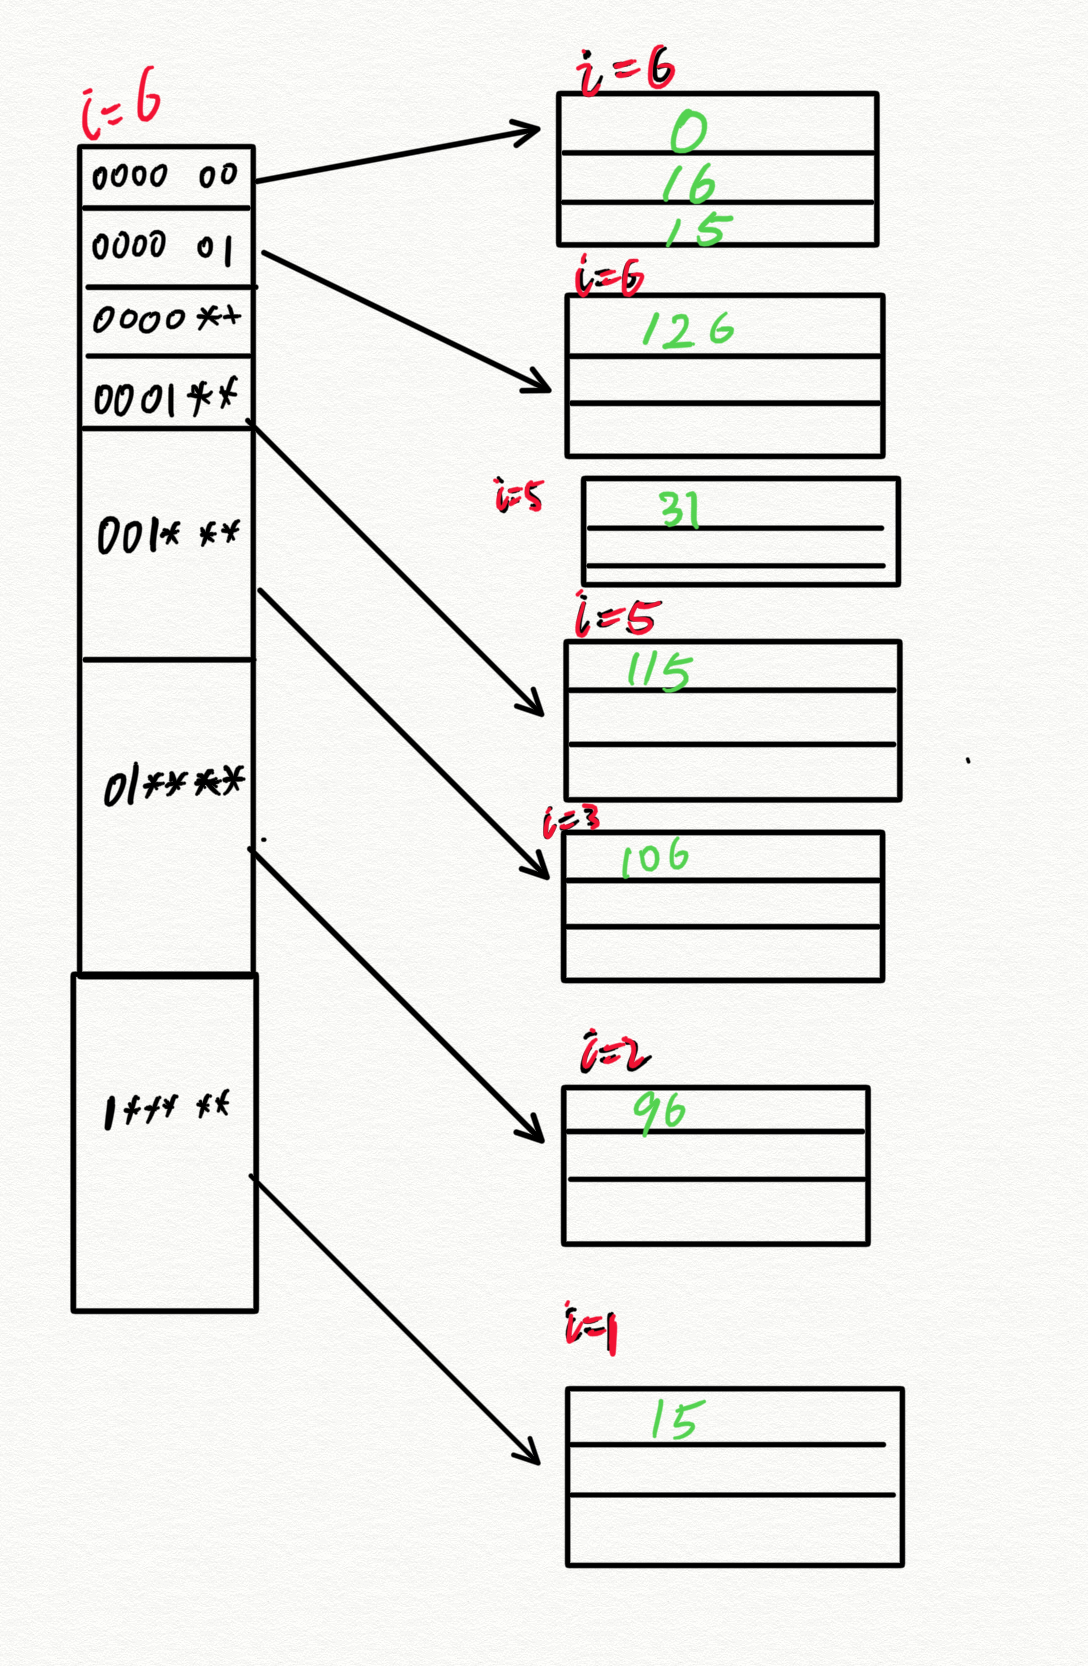 i=6
0000 00
0000 01
0000 *+
0001**
001* **
01** **
1*** **
i=6
0
16
15
i=6
126
i=5
31
i=5
115
i=3
106
i=2
96
i=1
15